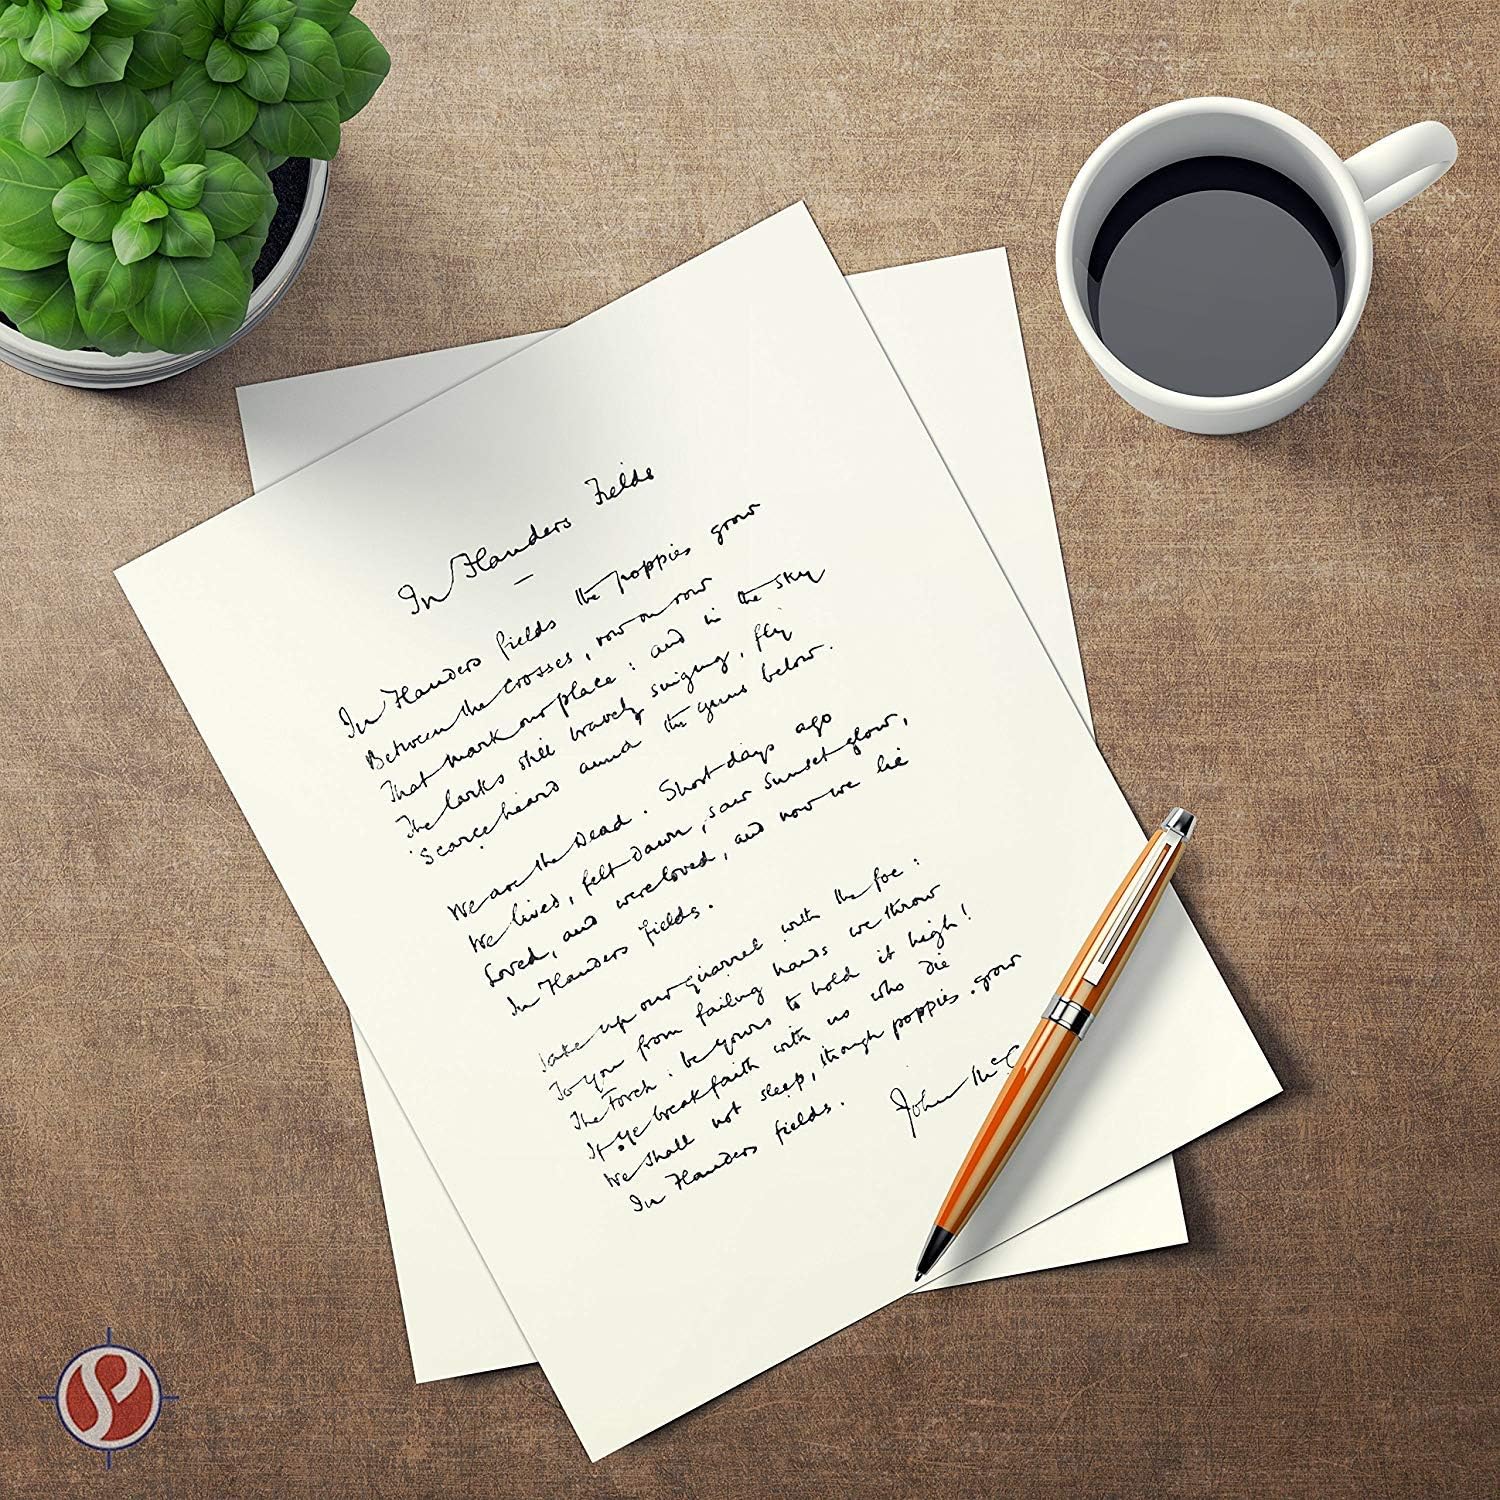 In Flanders Fields
In Flanders fields the poppies grow
Between the crosses, row on row
That mark our place: and in the sky
The larks still bravely singing, fly
Scarce heard amid the guns below.
We are the Dead. Short days ago
We lived, felt dawn, saw sunset glow,
Loved, and were loved, and now we lie
In Flanders fields.
Take up our quarrel with the foe:
To you from failing hands we throw
The Torch: be yours to hold it high!
If ye break faith with us who die
We shall not sleep, though poppies grow
In Flanders fields.
John McC